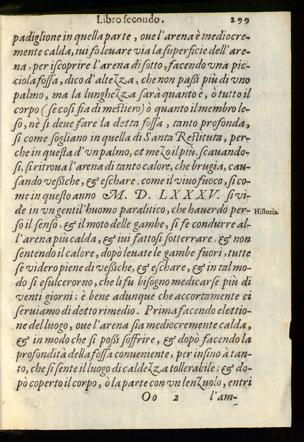 Libro secondo. 299
padiglione in quella parte, oue l'arena è mediocre-
mente calda, iui fo leuare via la superficie dell'are-
na; per iscoprire l'arena di sotto, facendo vna pic-
ciola fossa, dico d'altezza, che non passi più di vno
palmo, ma la lunghezza sarà quanto è, ò tutto il
corpo (se così fia di mestiero) ò quanto il membro le-
so, nè si deue fare la detta fossa, tanto profonda,
si come sogliano in quella di Santa Restituta, per-
che in questa d'vn palmo, et mezo il più, scauando-
si, si ritroua l'arena di tanto calore, che brugia, cau-
sando vessiche, & eschare, come il viuo fuoco, si co-
me in questo anno M. D. LXXXV. si vi-
de in vn gentil'huomo paralitico, che hauendo per-
so il senso, & il moto delle gambe, si fe condurre al-
l'arena più calda, & iui fattosi sotterrare, & non
sentendo il calore, dopò leuate le gambe fuori, tutte
se videro piene di vessiche, & eschare, & in tal mo-
do si esulcerorno, che li fu bisogno medicarse più di
venti giorni; è bene adunque che accortamente ci
seruiamo di detto rimedio. Prima facendo elettio-
ne del luogo, oue l'arena sia mediocremente calda,
& in modo che si possi soffrire, & dopò facendo la
profondità della fossa conueniente, per insino à tan-
to, che si sente il luogo di caldezza tollerabile; & do-
pò coperto il corpo, ò la parte con vn lenzuolo, entri
Oo 2 l'am-
Historia.